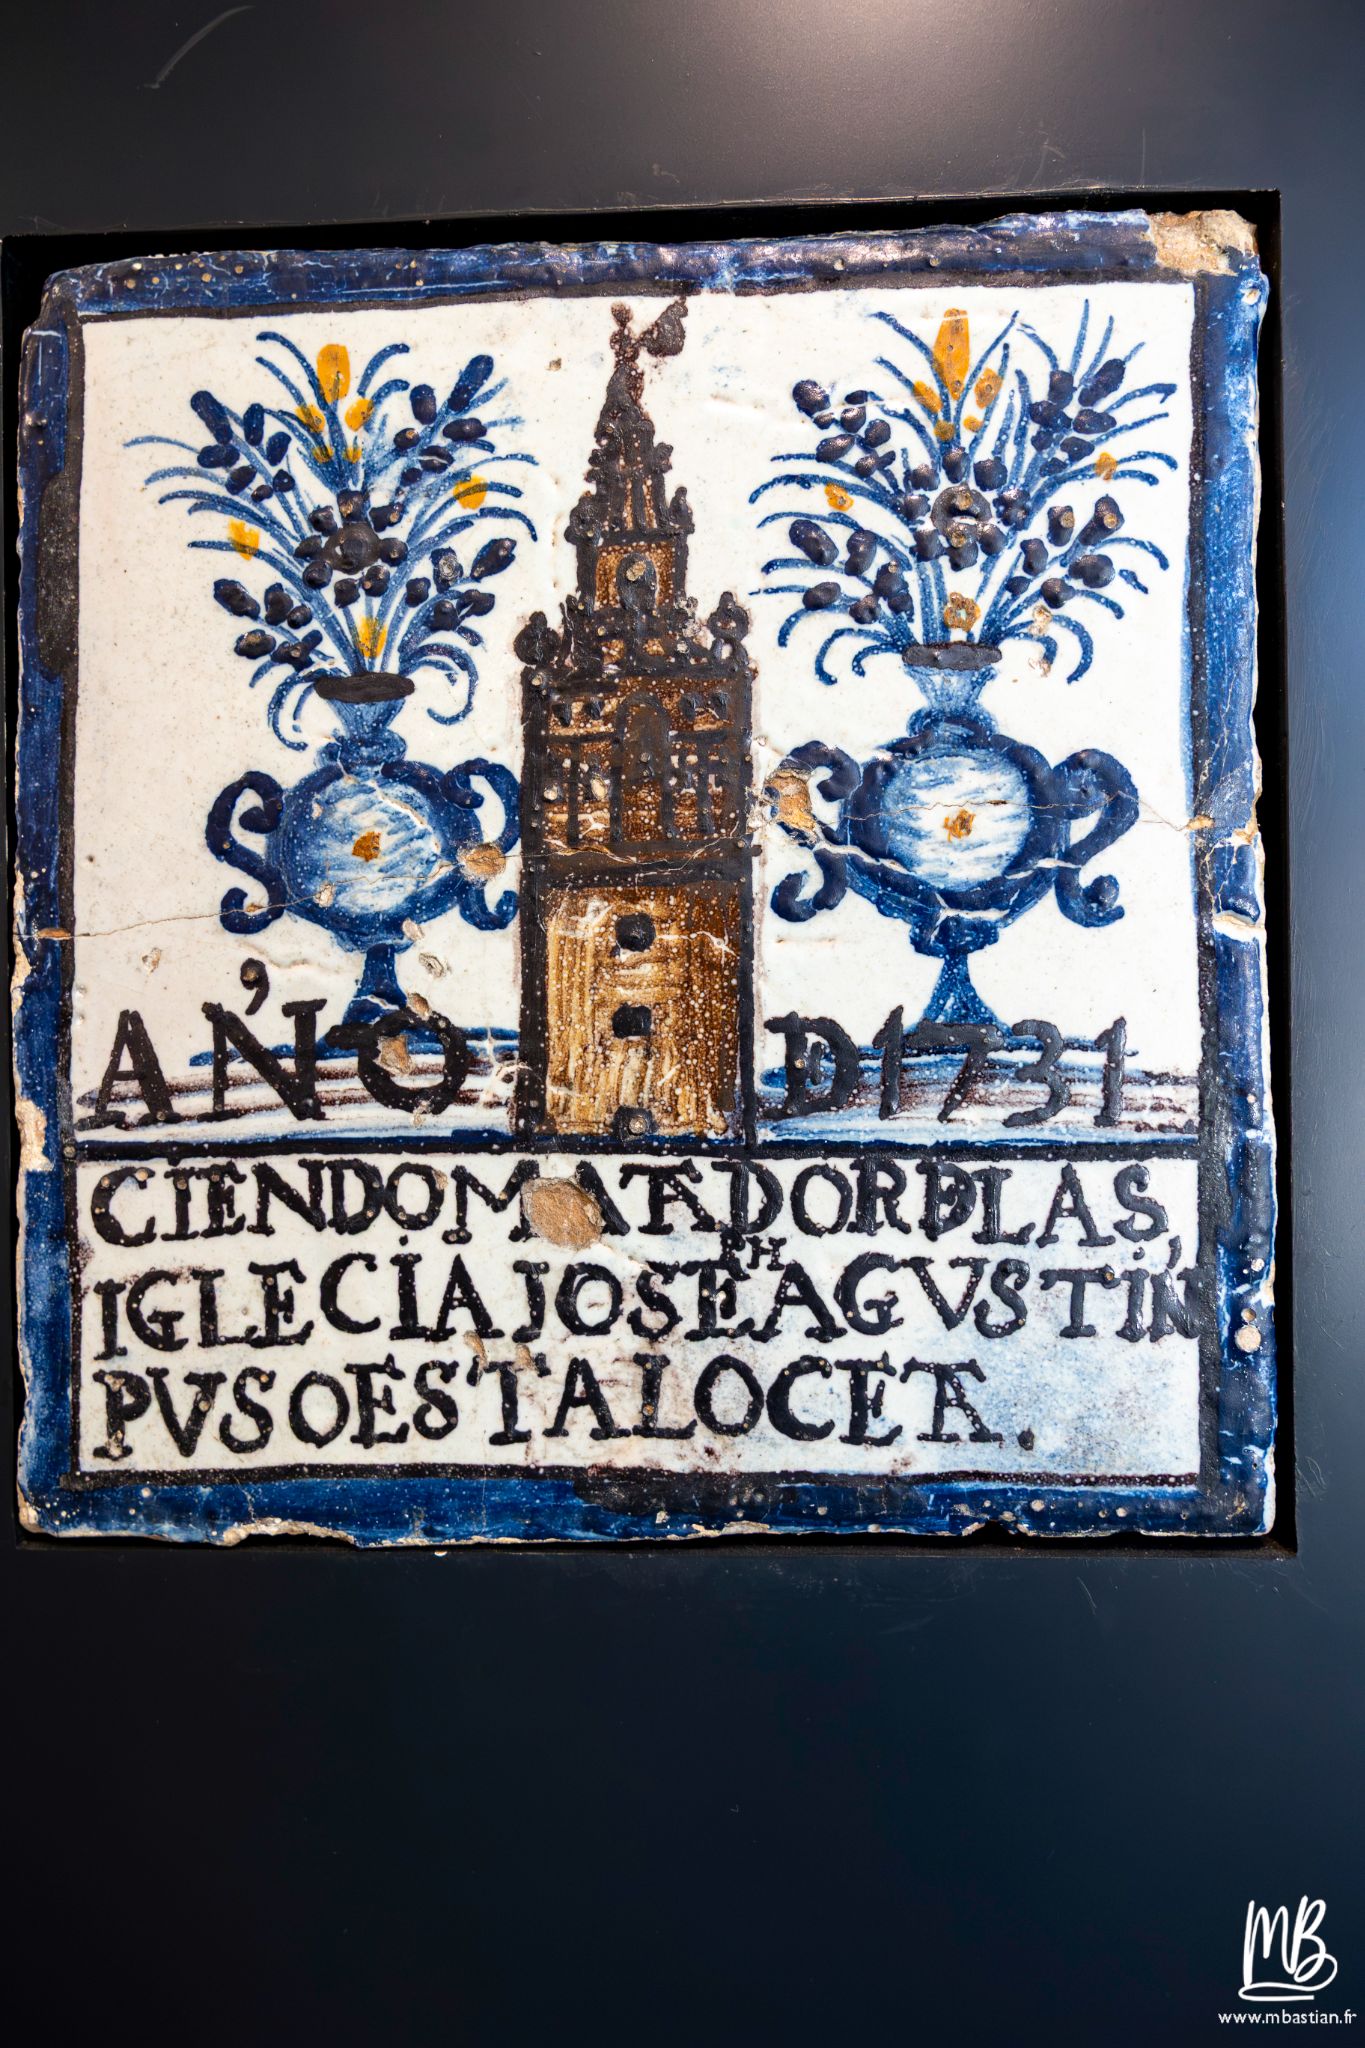 AÑO D 1731
CIENDO MATADOR DE LAS
IGLECIA JOSEPH AGUSTIN
PUSO ESTA LOCETA.
MB
www.mbastian.fr